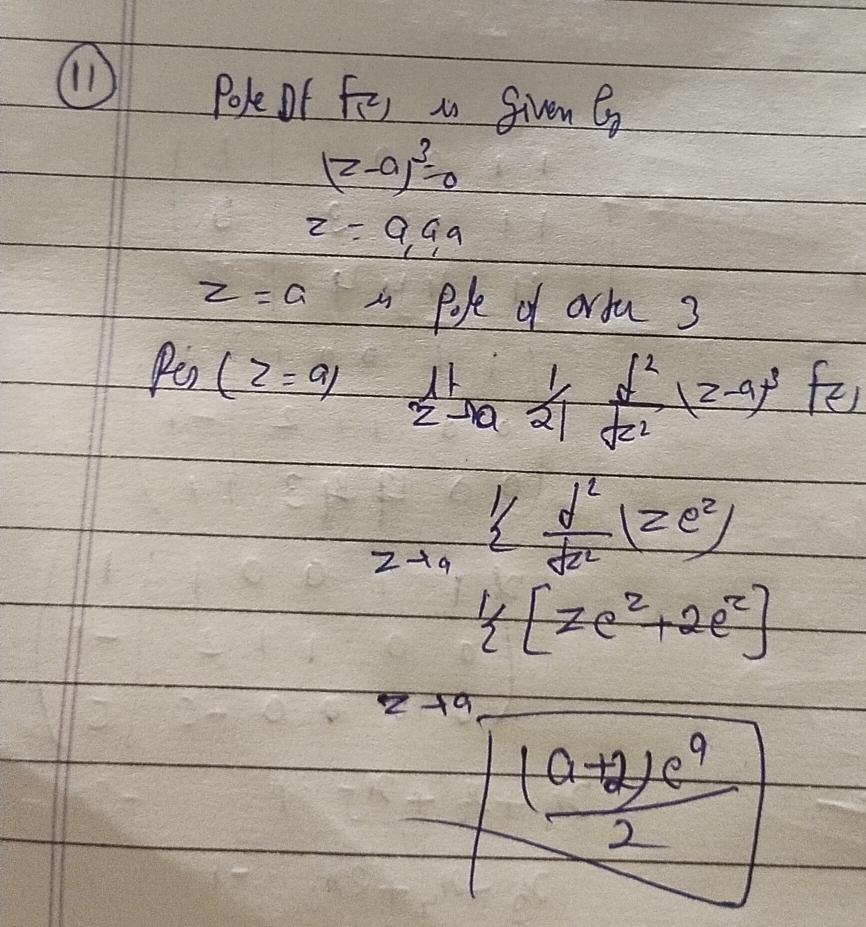 11 Pole Of f(z) is Given by
(z-a)³=0
z = a,a,a
z = a is Pole of order 3
Res (z=a) lt z→a 1/2! d²/dz² (z-a)³ f(z)
z→a 1/2 d²/dz² (z e^z)
1/2 [z e^z + 2e^z]
z→a
(a+2)e^a / 2